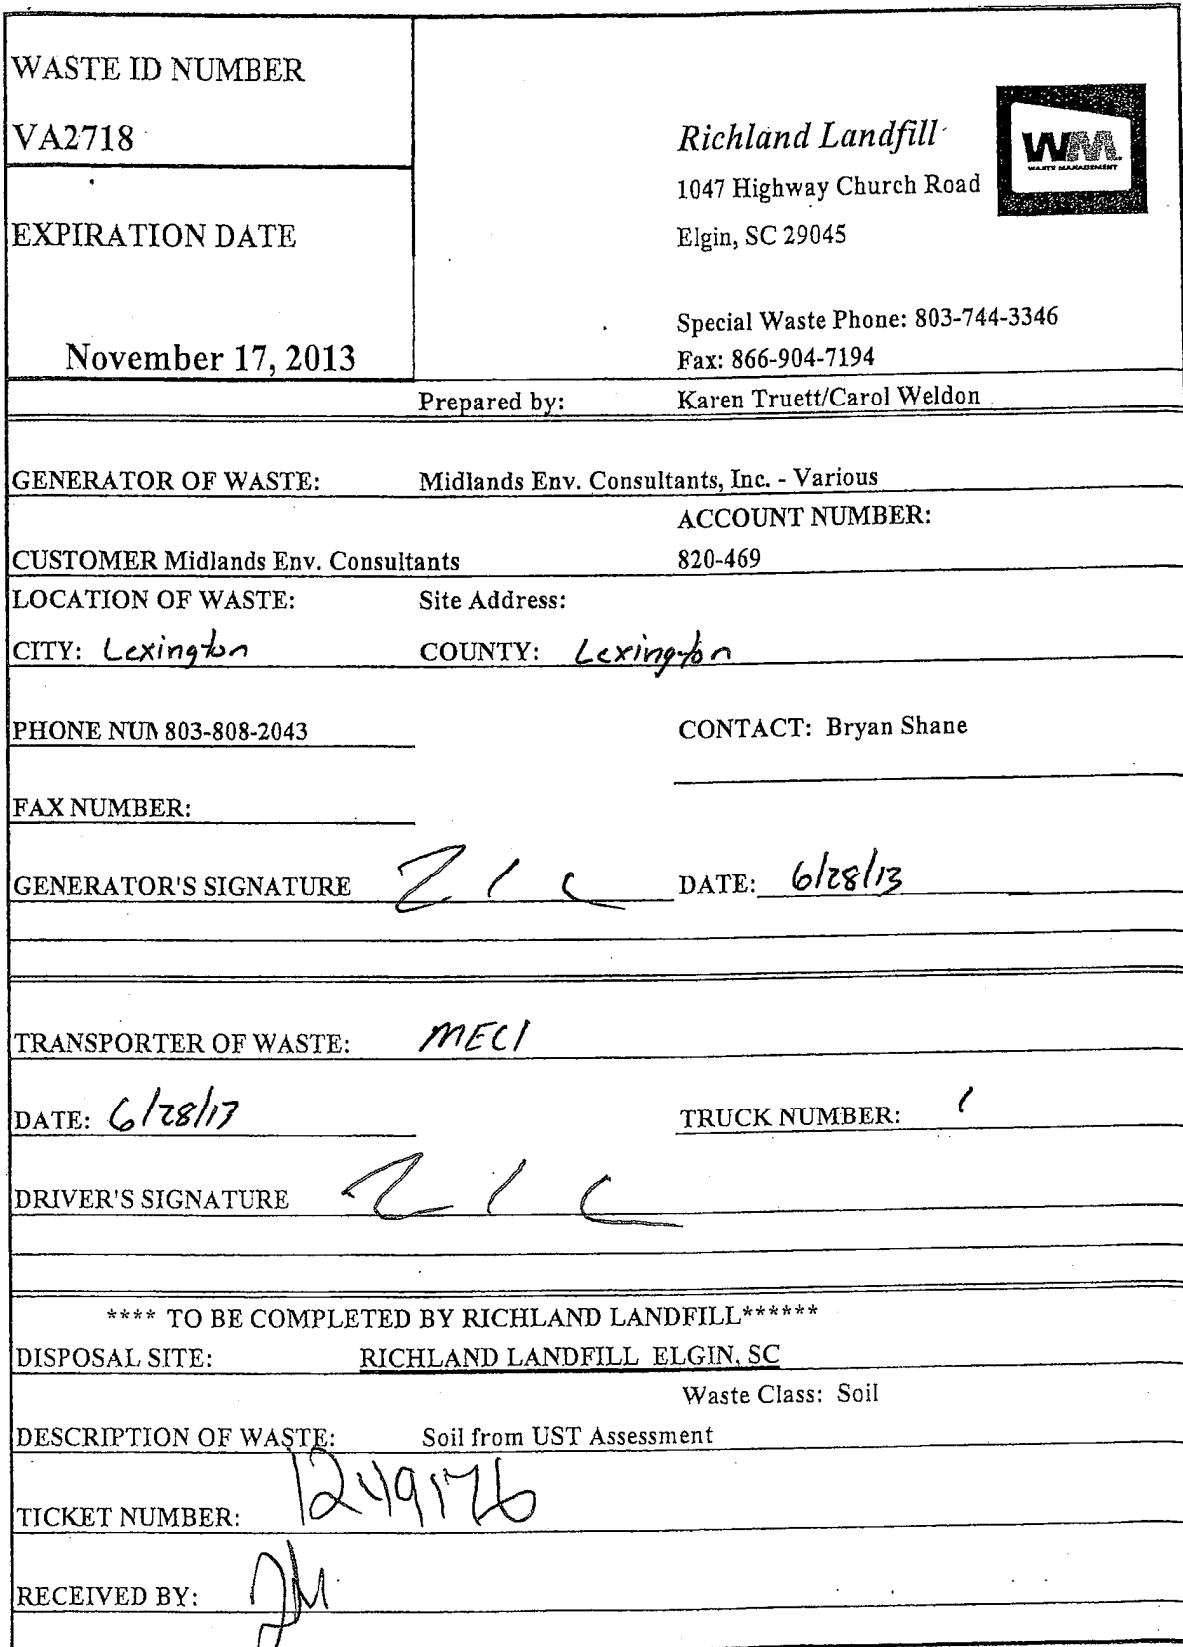 WASTE ID NUMBER
VA2718
EXPIRATION DATE
November 17, 2013
Richland Landfill
1047 Highway Church Road
Elgin, SC 29045
WM
WASTE MANAGEMENT
Special Waste Phone: 803-744-3346
Fax: 866-904-7194
Prepared by: Karen Truett/Carol Weldon
GENERATOR OF WASTE: Midlands Env. Consultants, Inc. - Various
ACCOUNT NUMBER:
CUSTOMER Midlands Env. Consultants 820-469
LOCATION OF WASTE: Site Address:
CITY: Lexington COUNTY: Lexington
PHONE NUM 803-808-2043 CONTACT: Bryan Shane
FAX NUMBER:
GENERATOR'S SIGNATURE DATE: 6/28/13
TRANSPORTER OF WASTE: MECI
DATE: 6/28/13 TRUCK NUMBER: 1
DRIVER'S SIGNATURE
**** TO BE COMPLETED BY RICHLAND LANDFILL******
DISPOSAL SITE: RICHLAND LANDFILL ELGIN, SC
Waste Class: Soil
DESCRIPTION OF WASTE: Soil from UST Assessment
TICKET NUMBER: 1249176
RECEIVED BY: